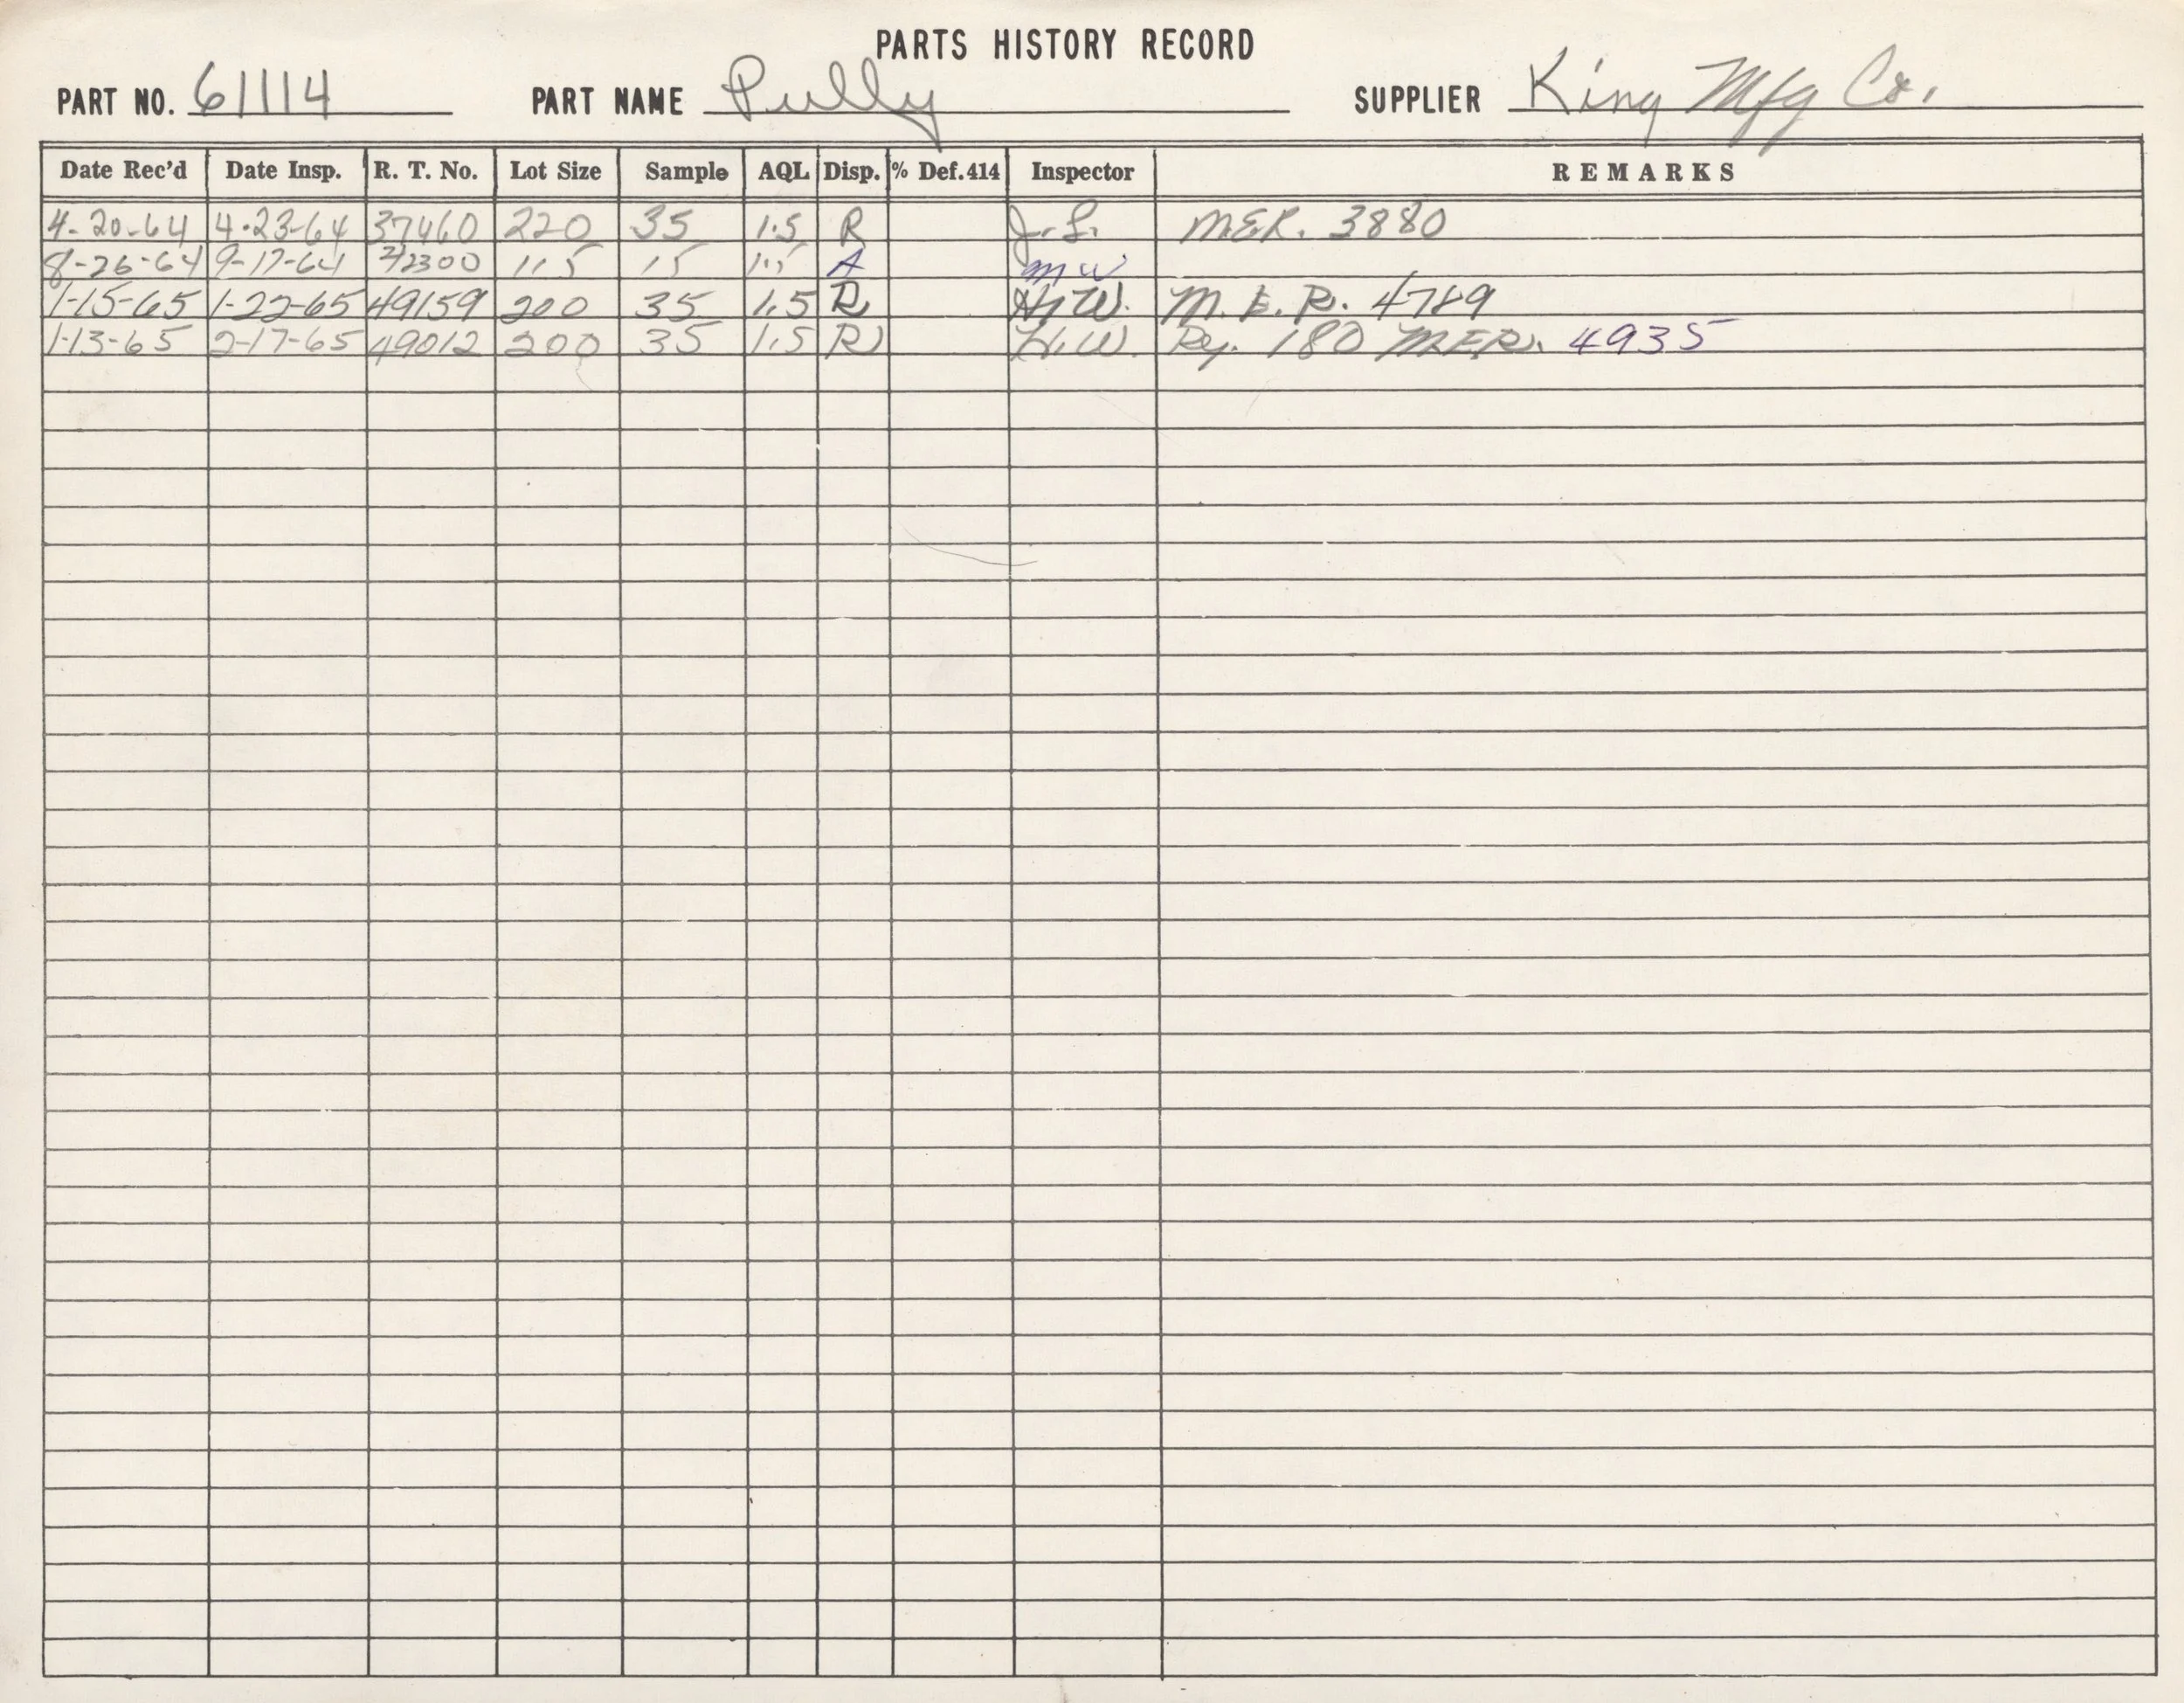 PARTS HISTORY RECORD
PART NO. 61114 PART NAME Pully SUPPLIER King Mfg Co.
Date Rec'd Date Insp. R. T. No. Lot Size Sample AQL Disp. % Def.414 Inspector REMARKS
4-20-64 4-23-64 37460 220 35 1.5 R J.S. M.E.R. 3880
8-26-64 9-17-64 42300 115 15 1.5 A mw
1-15-65 1-22-65 49159 200 35 1.5 R H.W. M.E.R. 4789
1-13-65 2-17-65 49012 200 35 1.5 R H.W. Rej. 180 M.E.R. 4935